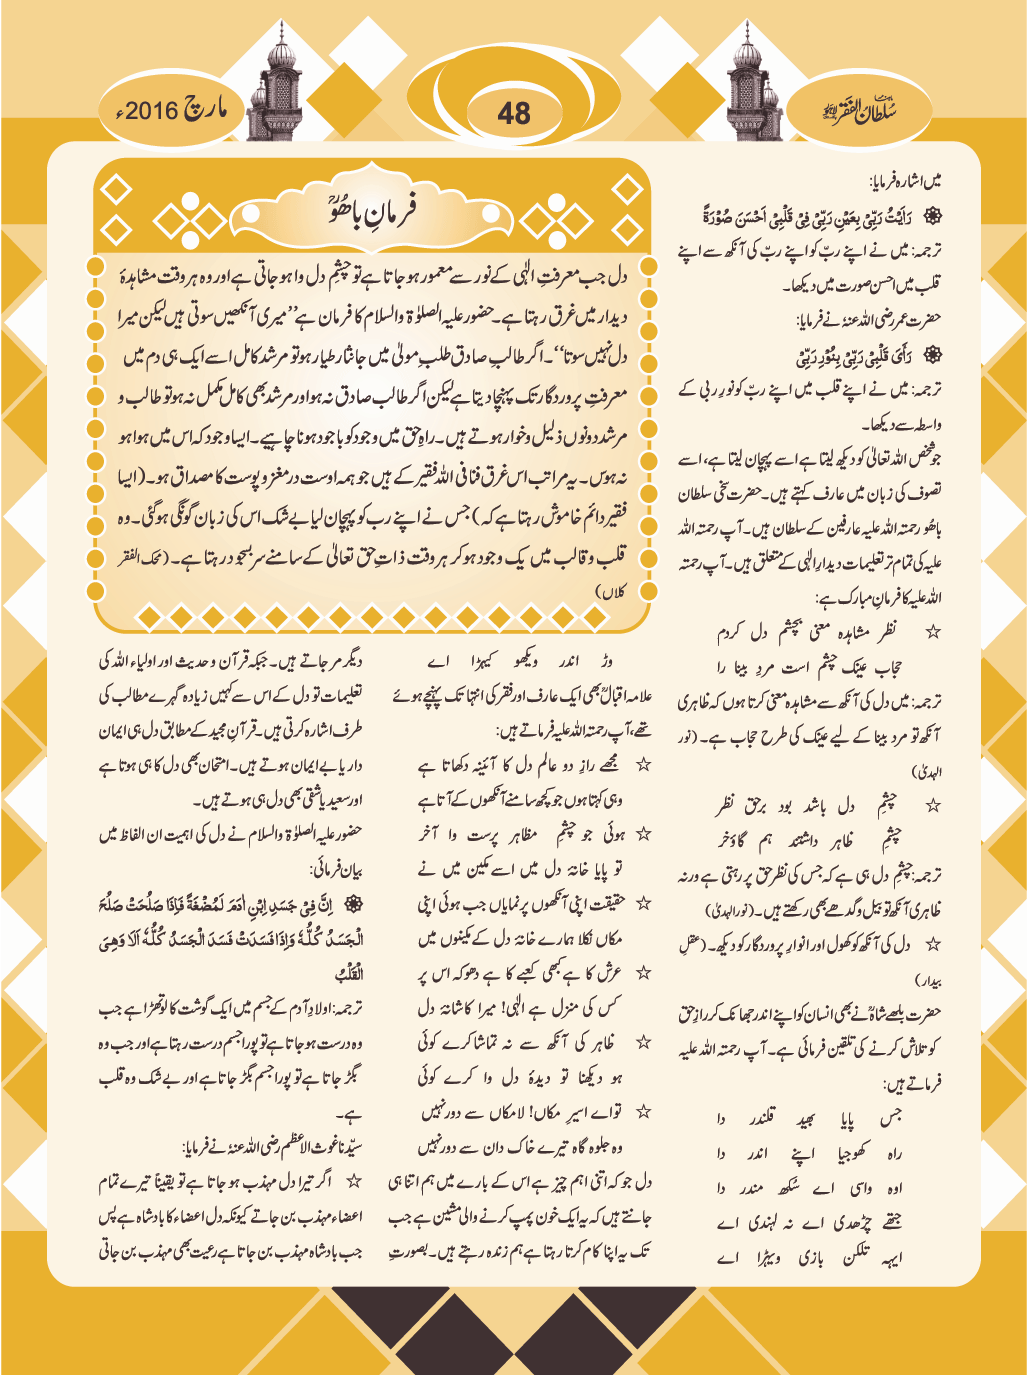 ماہنامہ سلطان الفقر لاہور
48
مارچ 2016ء
میں اشارہ فرمایا:
رَاَیْتُ رَبِّیْ بِعَیْنِ رَبِّیْ فِیْ قَلْبِیْ اَحْسَنَ صُوْرَۃً
ترجمہ: میں نے اپنے ربّ کو اپنے ربّ کی آنکھ سے اپنے
قلب میں احسن صورت میں دیکھا۔
حضرت عمر رضی اللہ عنہٗ نے فرمایا:
رَأَیَ قَلْبِیْ رَبِّیْ بِنُوْرِ رَبِّیْ
ترجمہ: میں نے اپنے قلب میں اپنے ربّ کو نورِ ربی کے
واسطہ سے دیکھا۔
جو شخص اللہ تعالیٰ کو دیکھ لیتا ہے اسے پہچان لیتا ہے، اسے
تصوف کی زبان میں عارف کہتے ہیں۔ حضرت سخی سلطان
باھُو رحمتہ اللہ علیہ عارفین کے سلطان ہیں۔ آپ رحمتہ اللہ
علیہ کی تمام تر تعلیمات دیدارِ الٰہی کے متعلق ہیں۔ آپ رحمتہ
اللہ علیہ کا فرمانِ مبارک ہے:
☆ نظر مشاہدہ معنی بچشم دل کردم
حجاب عینک چشم است مردِ بینا را
ترجمہ: میں دل کی آنکھ سے مشاہدہ معنی کرتا ہوں کہ ظاہری
آنکھ تو مرد بینا کے لیے عینک کی طرح حجاب ہے۔ (نور
الہدیٰ)
☆ چشمِ دل باشد بود برحق نظر
چشمِ ظاہر داشتند ہم گاؤ خر
ترجمہ: چشمِ دل ہی ہے کہ جس کی نظر حق پر رہتی ہے ورنہ
ظاہری آنکھ تو بیل و گدھے بھی رکھتے ہیں۔ (نور الہدیٰ)
☆ دل کی آنکھ کو کھول اور انوارِ پروردگار کو دیکھ۔ (عقلِ
بیدار)
حضرت بلھے شاہؒ نے بھی انسان کو اپنے اندر جھانک کر رازِ حق
کو تلاش کرنے کی تلقین فرمائی ہے۔ آپ رحمتہ اللہ علیہ
فرماتے ہیں:
جس پایا بھید قلندر دا
راہ کھوجیا اپنے اندر دا
اوہ واسی اے سُکھ مندر دا
جتھے چڑھدی اے نہ لہندی اے
ایہہ تلکن بازی ویہڑا اے
فرمانِ باھُوؒ
دل جب معرفتِ الٰہی کے نور سے معمور ہو جاتا ہے تو چشمِ دل وا ہو جاتی ہے اور وہ ہر وقت مشاہدۂ
دیدار میں غرق رہتا ہے۔ حضور علیہ الصلوٰۃ والسلام کا فرمان ہے ’’میری آنکھیں سوتی ہیں لیکن میرا
دل نہیں سوتا‘‘۔ اگر طالبِ صادق طلبِ مولیٰ میں جانثار طیار ہو تو مرشد کامل اسے ایک ہی دم میں
معرفتِ پروردگار تک پہنچا دیتا ہے لیکن اگر طالب صادق نہ ہو اور مرشد بھی کامل مکمل نہ ہو تو طالب و
مرشد دونوں ذلیل و خوار ہوتے ہیں۔ راہِ حق میں وجود کو باجود ہونا چاہیے۔ ایسا وجود کہ اس میں ہوا ہو
نہ ہوس۔ یہ مراتب اس غرق فنا فی اللہ فقیر کے ہیں جو ہمہ اوست در مغز و پوست کا مصداق ہو۔ (ایسا
فقیر دائم خاموش رہتا ہے کہ) جس نے اپنے رب کو پہچان لیا بے شک اس کی زبان گونگی ہوگئی۔ وہ
قلب و قالب میں یک وجود ہو کر ہر وقت ذاتِ حق تعالیٰ کے سامنے سر بسجود رہتا ہے۔ (محک الفقر
کلاں)
وڑ اندر ویکھو کیہڑا اے
علامہ اقبالؒ بھی ایک عارف اور فقر کی انتہا تک پہنچے ہوئے
تھے، آپ رحمتہ اللہ علیہ فرماتے ہیں:
☆ مجھے رازِ دو عالم دل کا آئینہ دکھاتا ہے
وہی کہتا ہوں جو کچھ سامنے آنکھوں کے آتا ہے
☆ ہوئی جو چشمِ مظاہر پرست وا آخر
تو پایا خانۂ دل میں اسے مکین میں نے
☆ حقیقت اپنی آنکھوں پر نمایاں جب ہوئی اپنی
مکاں نکلا ہمارے خانۂ دل کے مکینوں میں
☆ عرش کا ہے کبھی کعبے کا ہے دھوکہ اس پر
کس کی منزل ہے الٰہی! میرا کاشانۂ دل
☆ ظاہر کی آنکھ سے نہ تماشا کرے کوئی
ہو دیکھنا تو دیدۂ دل وا کرے کوئی
☆ تو اے اسیرِ مکاں! لامکاں سے دور نہیں
وہ جلوہ گاہ تیرے خاک دان سے دور نہیں
دل جو کہ اتنی اہم چیز ہے اس کے بارے میں ہم اتنا ہی
جانتے ہیں کہ یہ ایک خون پمپ کرنے والی مشین ہے جب
تک یہ اپنا کام کرتا رہتا ہے ہم زندہ رہتے ہیں۔ بصورتِ
دیگر مر جاتے ہیں۔ جبکہ قرآن و حدیث اور اولیاء اللہ کی
تعلیمات تو دل کے اس سے کہیں زیادہ گہرے مطالب کی
طرف اشارہ کرتی ہیں۔ قرآنِ مجید کے مطابق دل ہی ایمان
دار یا بے ایمان ہوتے ہیں۔ امتحان بھی دل کا ہی ہوتا ہے
اور سعید یا شقی بھی دل ہی ہوتے ہیں۔
حضور علیہ الصلوٰۃ والسلام نے دل کی اہمیت ان الفاظ میں
بیان فرمائی:
اِنَّ فِیْ جَسَدِ اِبْنِ اٰدَمَ لَمُضْغَۃً فَاِذَا صَلُحَتْ صَلُحَ
الْجَسَدُ کُلُّہٗ وَاِذَا فَسَدَتْ فَسَدَ الْجَسَدُ کُلُّہٗ اَلَا وَھِیَ
الْقَلْبُ
ترجمہ: اولادِ آدم کے جسم میں ایک گوشت کا لوتھڑا ہے جب
وہ درست ہو جاتا ہے تو پورا جسم درست رہتا ہے اور جب وہ
بگڑ جاتا ہے تو پورا جسم بگڑ جاتا ہے اور بے شک وہ قلب
ہے۔
سیّدنا غوث الاعظم رضی اللہ عنہٗ نے فرمایا:
☆ اگر تیرا دل مہذب ہو جاتا ہے تو یقیناً تیرے تمام
اعضاء مہذب بن جاتے کیونکہ دل اعضاء کا بادشاہ ہے پس
جب بادشاہ مہذب بن جاتا ہے رعیت بھی مہذب بن جاتی